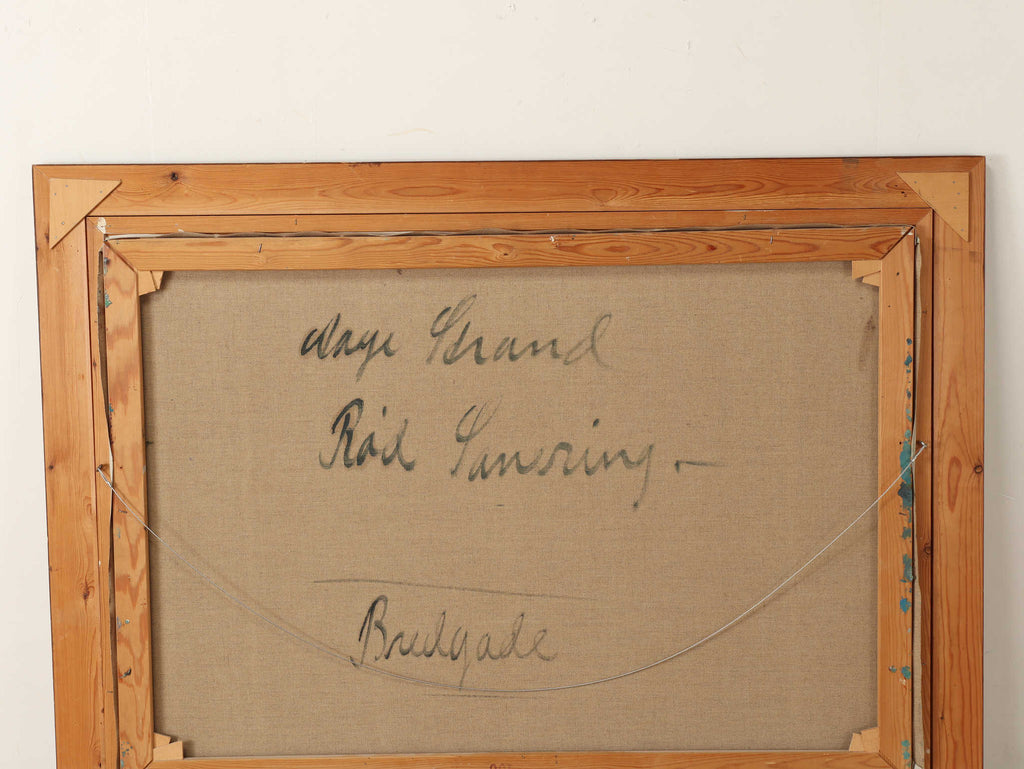 Aage Strand
Rød Sansering. —
Bredgade